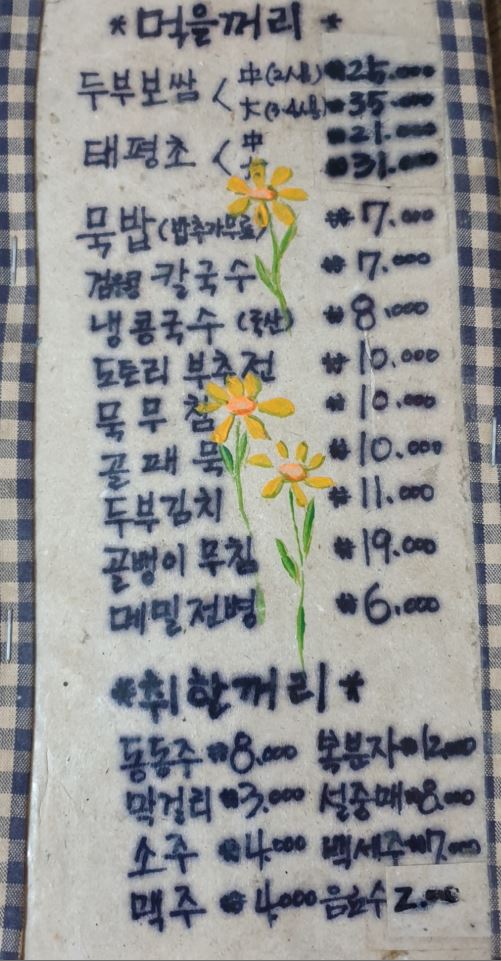 *먹을꺼리*
두부보쌈 < 中(2人용) ₩25.000
大(3~4人용) ₩35.000
태평초 < 中 ₩21.000
大 ₩31.000
묵밥(밥추가무료) ₩7.000
칼국수 ₩7.000
냉콩국수 (국산) ₩8.000
도토리 부추전 ₩10.000
묵무침 ₩10.000
골패묵 ₩10.000
두부김치 ₩11.000
골뱅이 무침 ₩19.000
메밀전병 ₩6.000
*취할꺼리*
동동주 ₩8.000 복분자 ₩12.000
막걸리 ₩3.000 설중매 ₩8.000
소주 ₩4.000 백세주 ₩7.000
맥주 ₩4.000 음료수 2.000